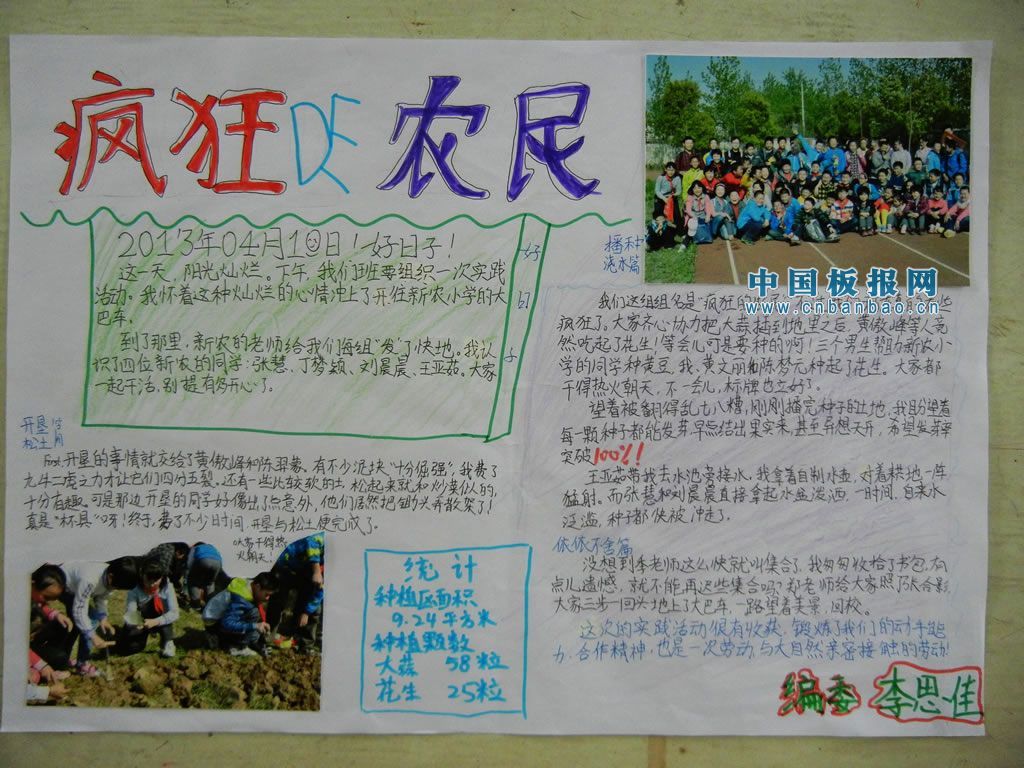 疯狂DE农民
2013年04月10日!好日子!
好
日
子
这一天,阳光灿烂。下午,我们班要组织一次实践
活动。我怀着这种灿烂的心情冲上了开往新农小学的大
巴车。
到了那里,新农的老师给我们每组"发"了快地。我认
识了四位新农的同学:张慧、丁梦颖、刘晨晨、王亚茹。大家
一起干活,别提有多开心了。
开垦
松土篇
First,开垦的事情就交给了黄傲峰和陈羿豪。有不少泥块"十分倔强",我费了
九牛二虎之力才让它们四分五裂。还有一些比较软的土,松起来就和炒菜似的,
十分有趣。可是那边开垦的同学好像出了点意外,他们居然把锄头弄散架了!
真是"杯具"呀!终于,费了不少时间,开垦与松土便完成了。
大家干得热
火朝天!
统计
种植区面积
9.24平方米
种植颗数
大蒜 58粒
花生 25粒
播种
浇水篇
中国板报网
www.cnbanbao.cn
我们这组组名是"疯狂的
疯狂了。大家齐心协力把大蒜插到地里之后,黄傲峰等人竟
然吃起了花生!等会儿可是要种的啊!三个男生帮助新农小
学的同学种黄豆,我、黄文丽和陈梦元种起了花生。大家都
干得热火朝天,不一会儿,标牌也立好了。
望着被翻得乱七八糟,刚刚播完种子的土地,我盼望着
每一颗种子都能发芽早点结出果实来,甚至异想天开,希望发芽率
突破100%!
王亚茹带我去水池旁接水,我拿着自制水壶,对着耕地一阵
猛射。而张慧和刘晨晨直接拿起水盆泼洒,一时间,自来水
泛滥,种子都快被冲走了。
依依不舍篇
没想到李老师这么快就叫集合了,我匆匆收拾了书包,有
点儿遗憾,就不能再迟些集合吗?郑老师给大家照了张合影,
大家三步一回头地上了大巴车,一路望着美景,回校。
这次的实践活动很有收获,锻炼了我们的动手能
力、合作精神,也是一次劳动与大自然亲密接触的劳动!
编委 李思佳